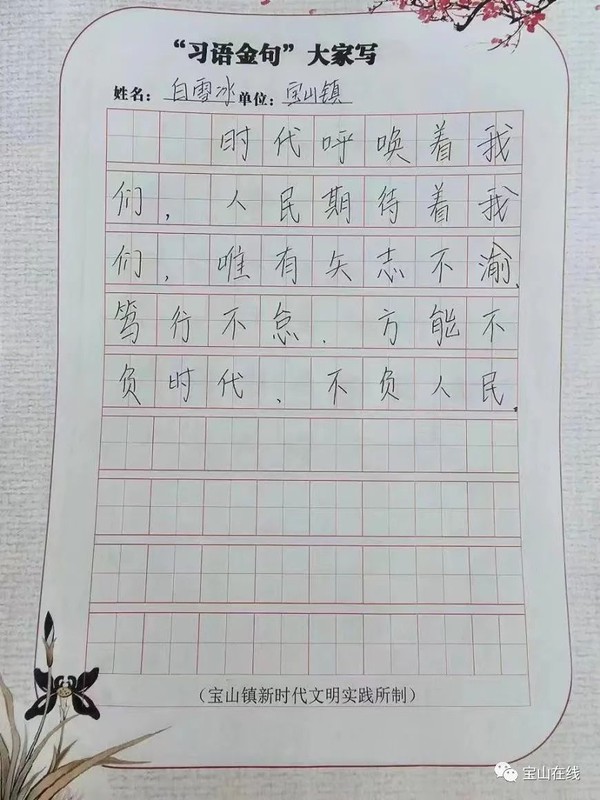 “习语金句”大家写
姓名：白雪冰 单位：宝山镇
时代呼唤着我
们，人民期待着我
们，唯有矢志不渝、
笃行不怠．方能不
负时代、不负人民．
（宝山镇新时代文明实践所制）
宝山在线